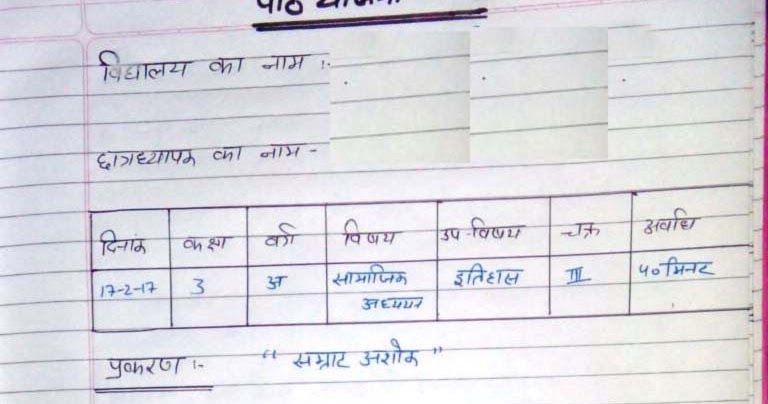 पाठ योजना
विद्यालय का नाम :-
छात्राध्यापक का नाम -
दिनांक कक्षा वर्ग विषय उप-विषय चक्र अवधि
17-2-17 3 अ सामाजिक इतिहास III ५० मिनट
अध्ययन
प्रकरण :- “ सम्राट अशोक ”